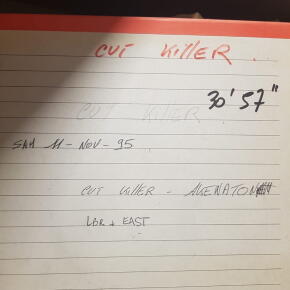 CUT KILLER .
30' 57"
CUT KILLER .
SAM 11 - NOV - 95
CUT KILLER - AKENATON
LBR + EAST